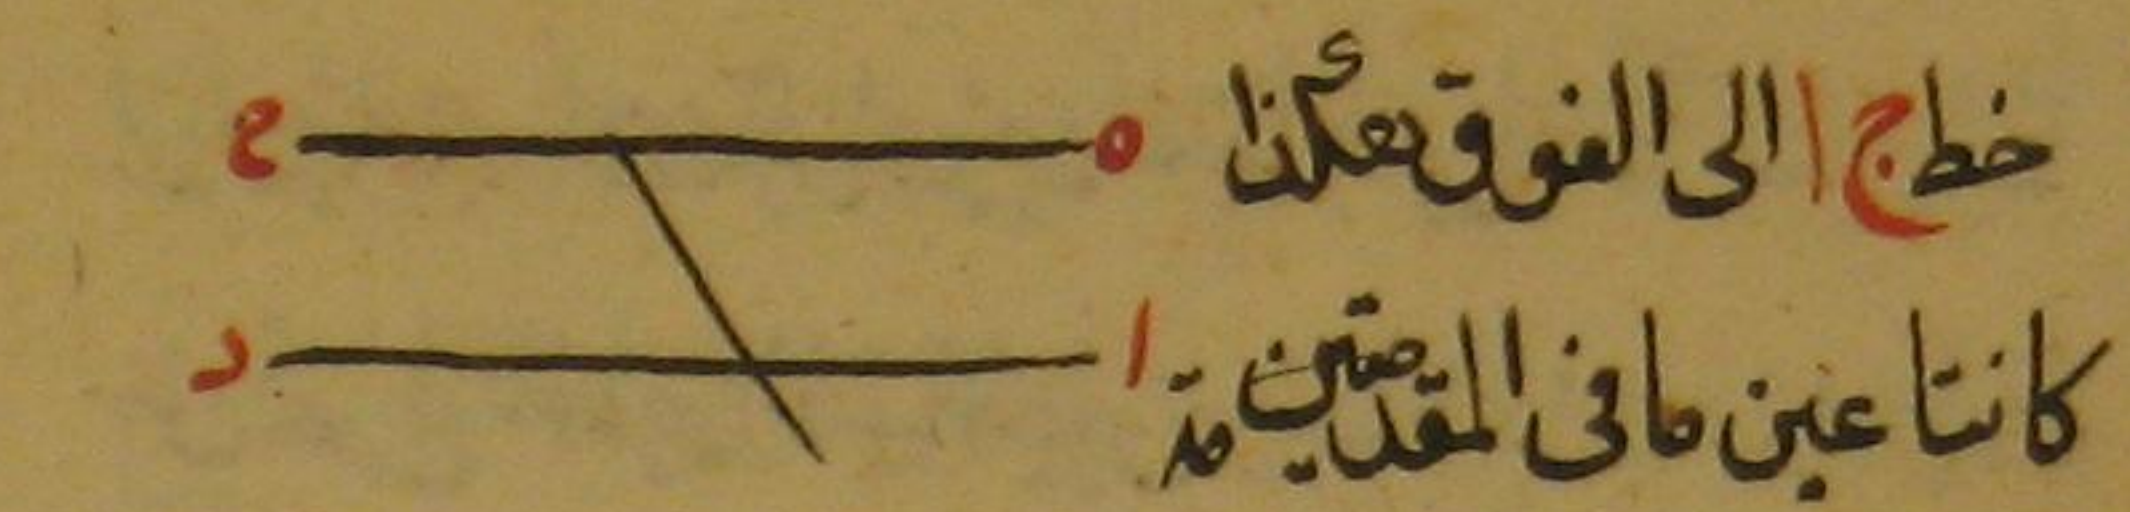 خط ج ا الى الفوق هكذا ه ح
كانتا عين ما فى المقدمتين ا د